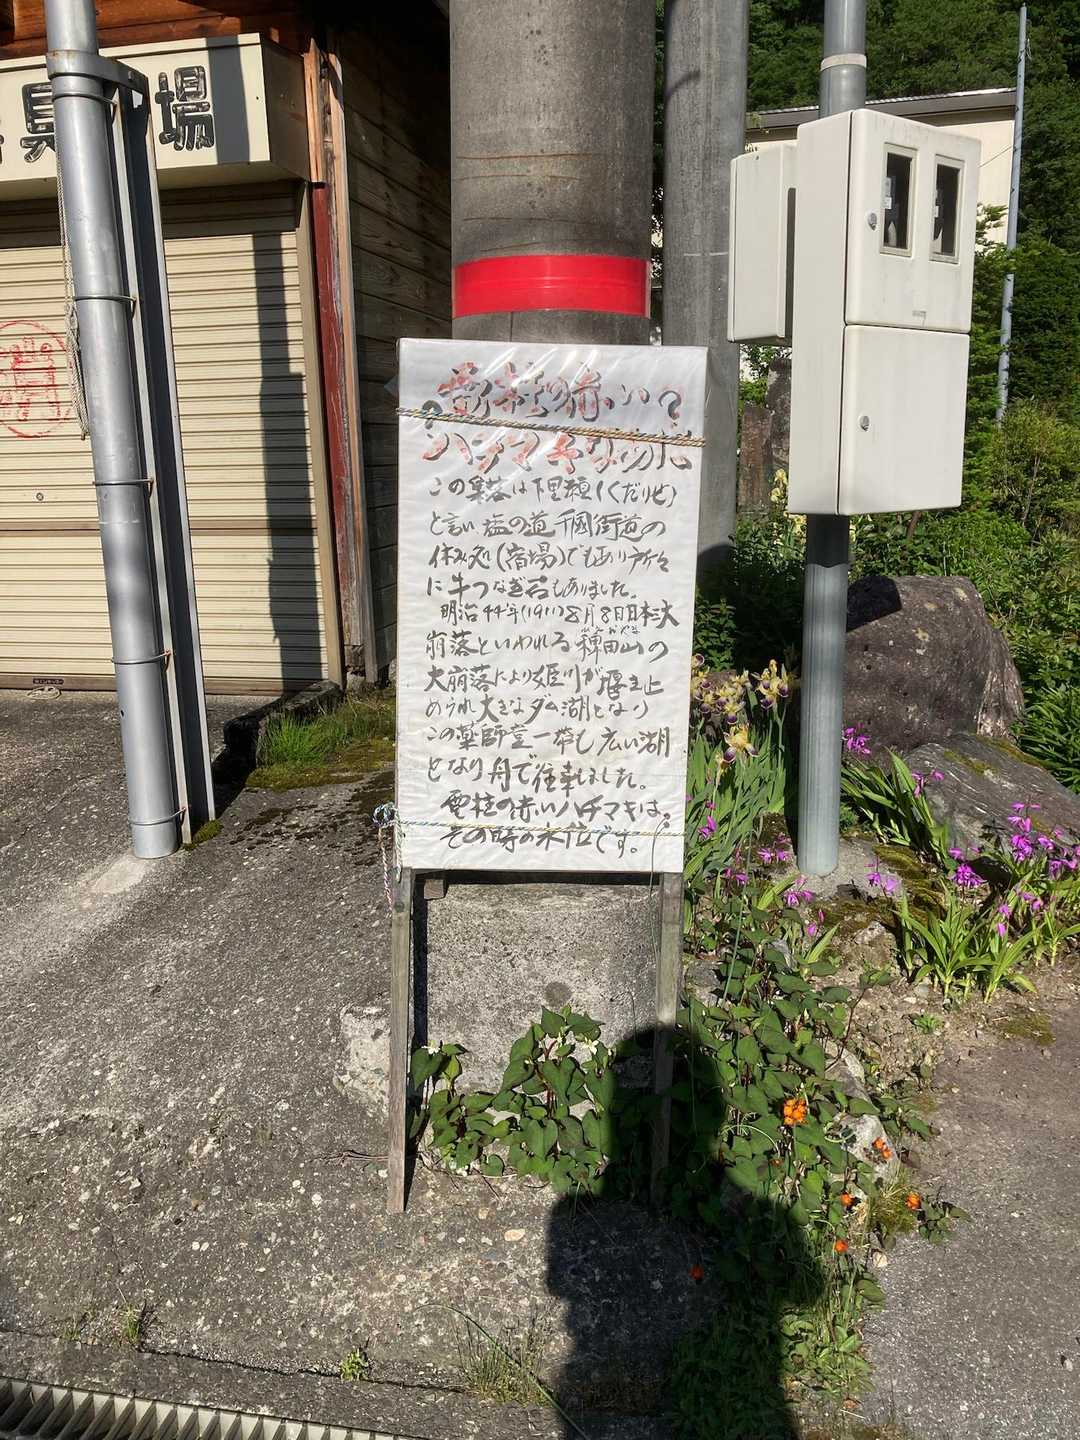 具場
電柱の赤い?
?ハチマキなあに
この集落は下里瀬(くだりせ)
と言い塩の道千国街道の
休み処(宿場)でもあり所々
に牛つなぎ石もありました。
明治44年(1911)8月8日日本三大
崩落といわれる稗田山の
大崩落により姫川が堰き止
められ大きなダム湖となり
この薬師堂一帯も広い湖
となり舟で往来しました。
電柱の赤いハチマキは、
その時の水位です。